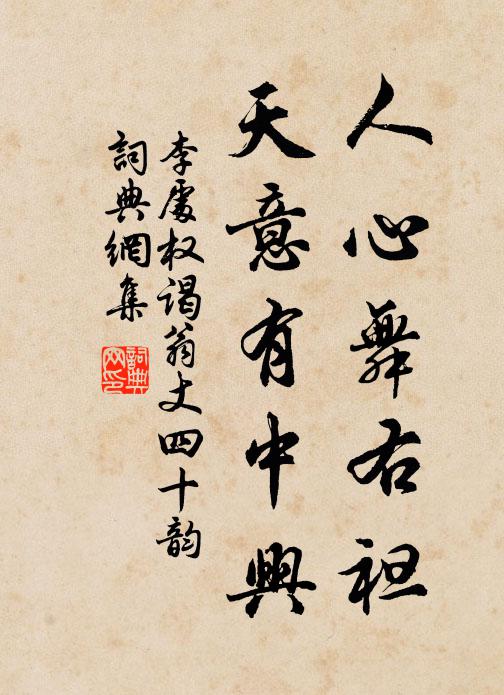 人心舞右袒
天意有中興
李處权謁翁丈四十韵
詞典網集
詞典网印